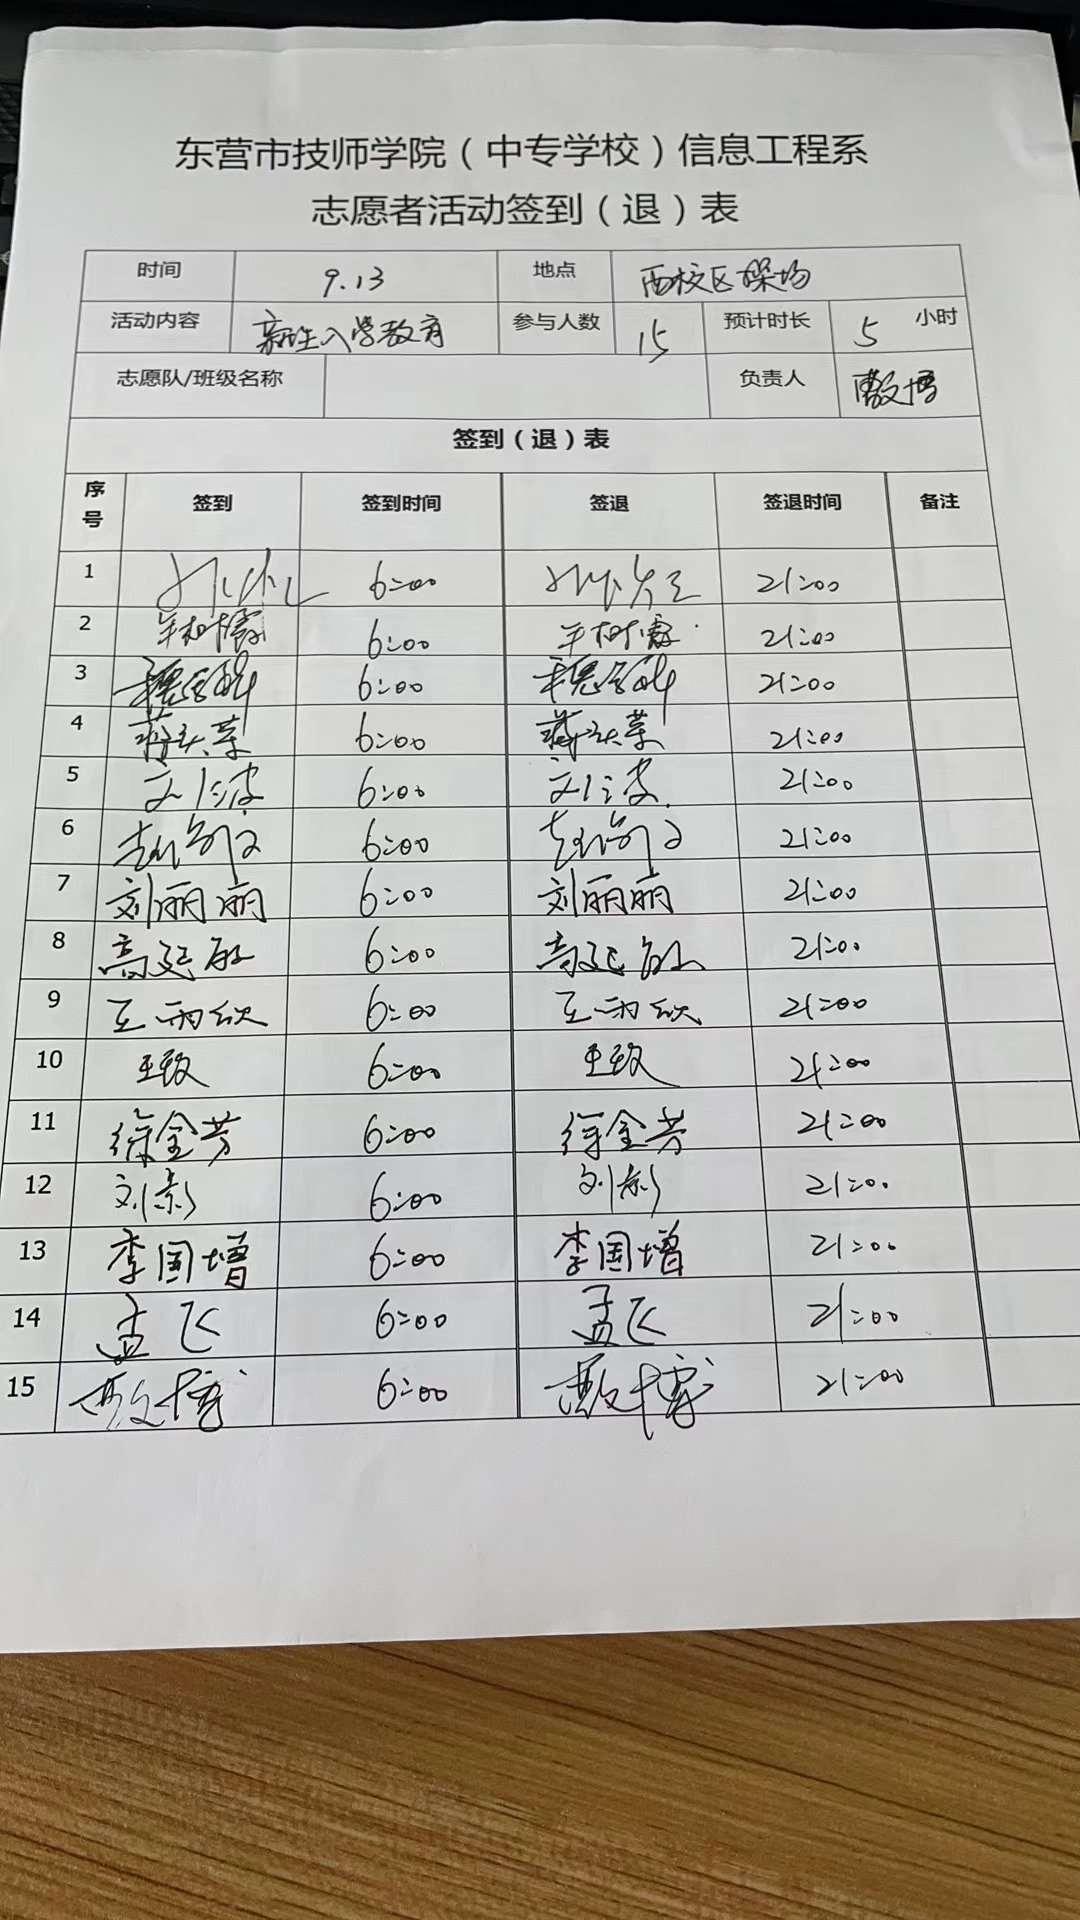 东营市技师学院（中专学校）信息工程系
志愿者活动签到（退）表
时间 9.13 地点 西校区操场
活动内容 新生入学教育 参与人数 15 预计时长 5 小时
志愿队/班级名称 负责人
签到（退）表
序号 签到 签到时间 签退 签退时间 备注
1 6:00 21:00
2 6:00 21:00
3 6:00 21:00
4 6:00 21:00
5 6:00 21:00
6 6:00 21:00
7 刘丽丽 6:00 刘丽丽 21:00
8 高延敏 6:00 高延敏 21:00
9 王雨欣 6:00 王雨欣 21:00
10 6:00 21:00
11 徐金芳 6:00 徐金芳 21:00
12 刘彰 6:00 刘彰 21:00
13 李国增 6:00 李国增 21:00
14 孟飞 6:00 孟飞 21:00
15 6:00 21:00